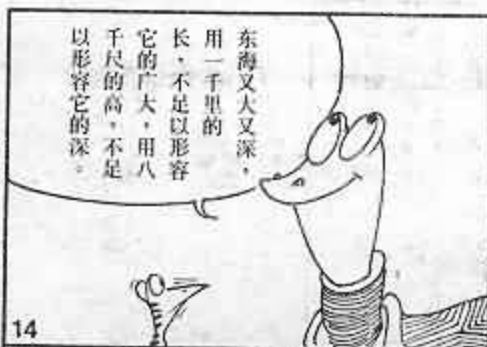 东海又大又深，
用一千里的
长，不足以形容
它的广大，用八
千尺的高，不足
以形容它的深。
14